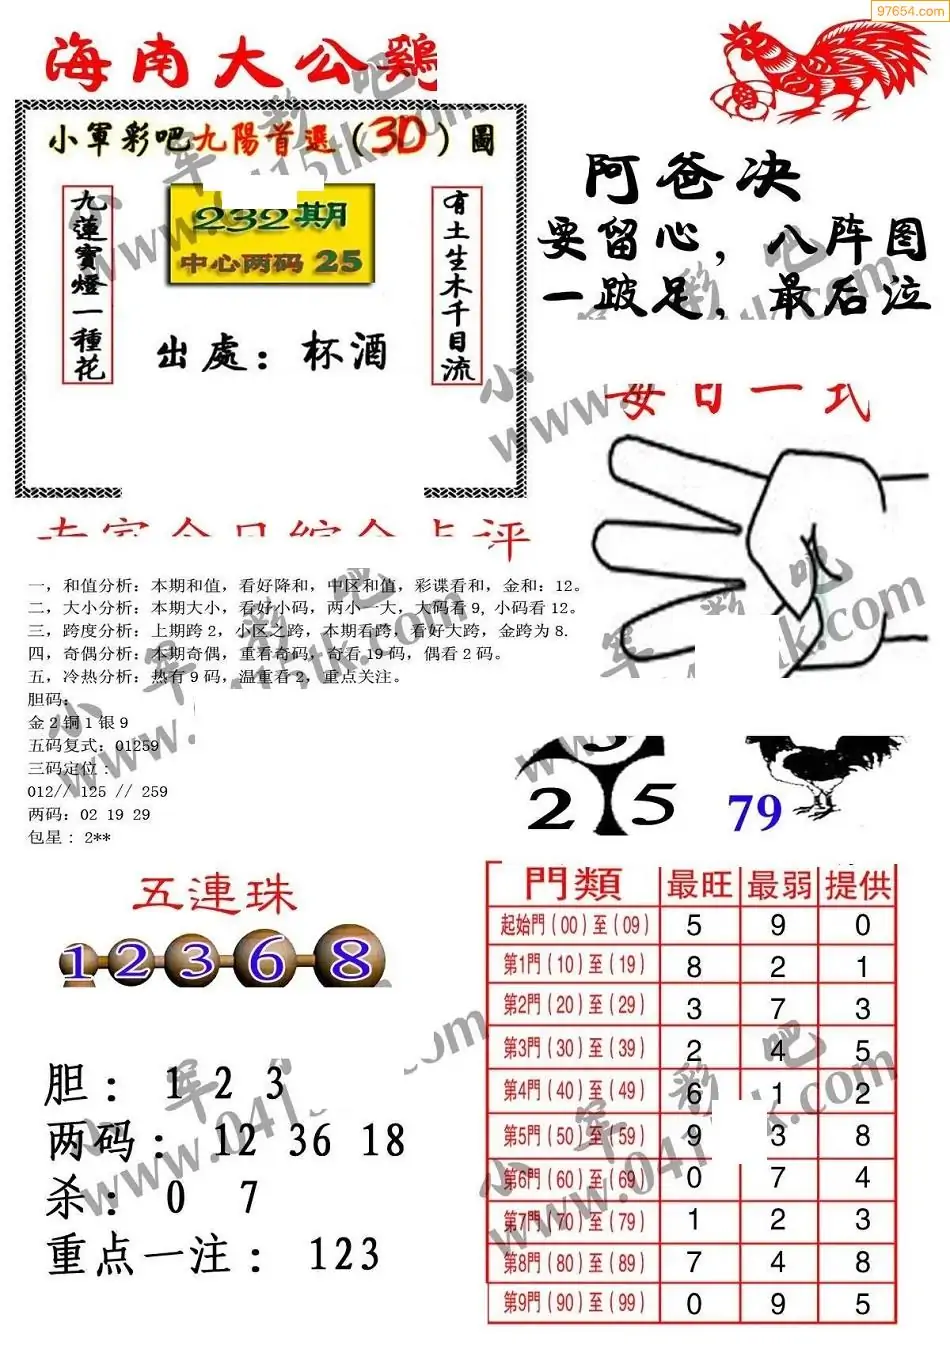 97654.com
海南大公鷄
小軍彩吧九陽首選（3D）圖
九蓮寶燈一種花
232期
中心两码 25
有土生木千目流
出處：杯酒
阿爸决
要留心，八阵图
一跛足，最后泣
每日一式
专家今日综合点评
一，和值分析：本期和值，看好降和，中区和值，彩谍看和，金和：12。
二，大小分析：本期大小，看好小码，两小一大，大码看9，小码看12。
三，跨度分析：上期跨2，小区之跨，本期看跨，看好大跨，金跨为8.
四，奇偶分析：本期奇偶，重看奇码，奇看19码，偶看2码。
五，冷热分析：热有9码，温重看2，重点关注。
胆码：
金2铜1银9
五码复式：01259
三码定位：
012// 125 // 259
两码：02 19 29
包星：2**
2 5
79
五連珠
1 2 3 6 8
胆：1 2 3
两码：12 36 18
杀：0 7
重点一注：123
門類 最旺 最弱 提供
起始門（00）至（09） 5 9 0
第1門（10）至（19） 8 2 1
第2門（20）至（29） 3 7 3
第3門（30）至（39） 2 4 5
第4門（40）至（49） 6 1 2
第5門（50）至（59） 9 3 8
第6門（60）至（69） 0 7 4
第7門（70）至（79） 1 2 3
第8門（80）至（89） 7 4 8
第9門（90）至（99） 0 9 5